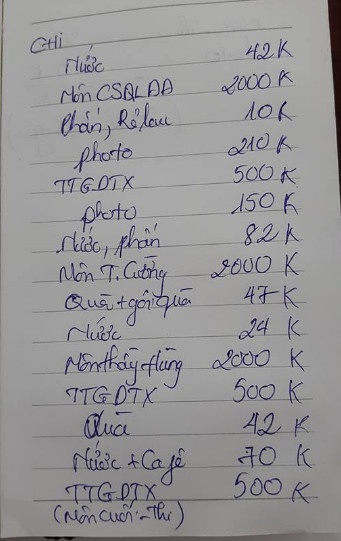 CHI
Nước 42K
Môn CSQLDĐ 2000K
Phấn, Rẻ lau 10K
photo 210K
TTGDTX 500K
photo 150K
Nước, phấn 82K
Môn T. Cường 2000K
Quà + gói quà 47K
Nước 24K
Môn thầy Hùng 2000K
TTGDTX 500K
Quà 42K
Nước + Cafê 70K
TTGDTX 500K
(Môn cuối - Thi)